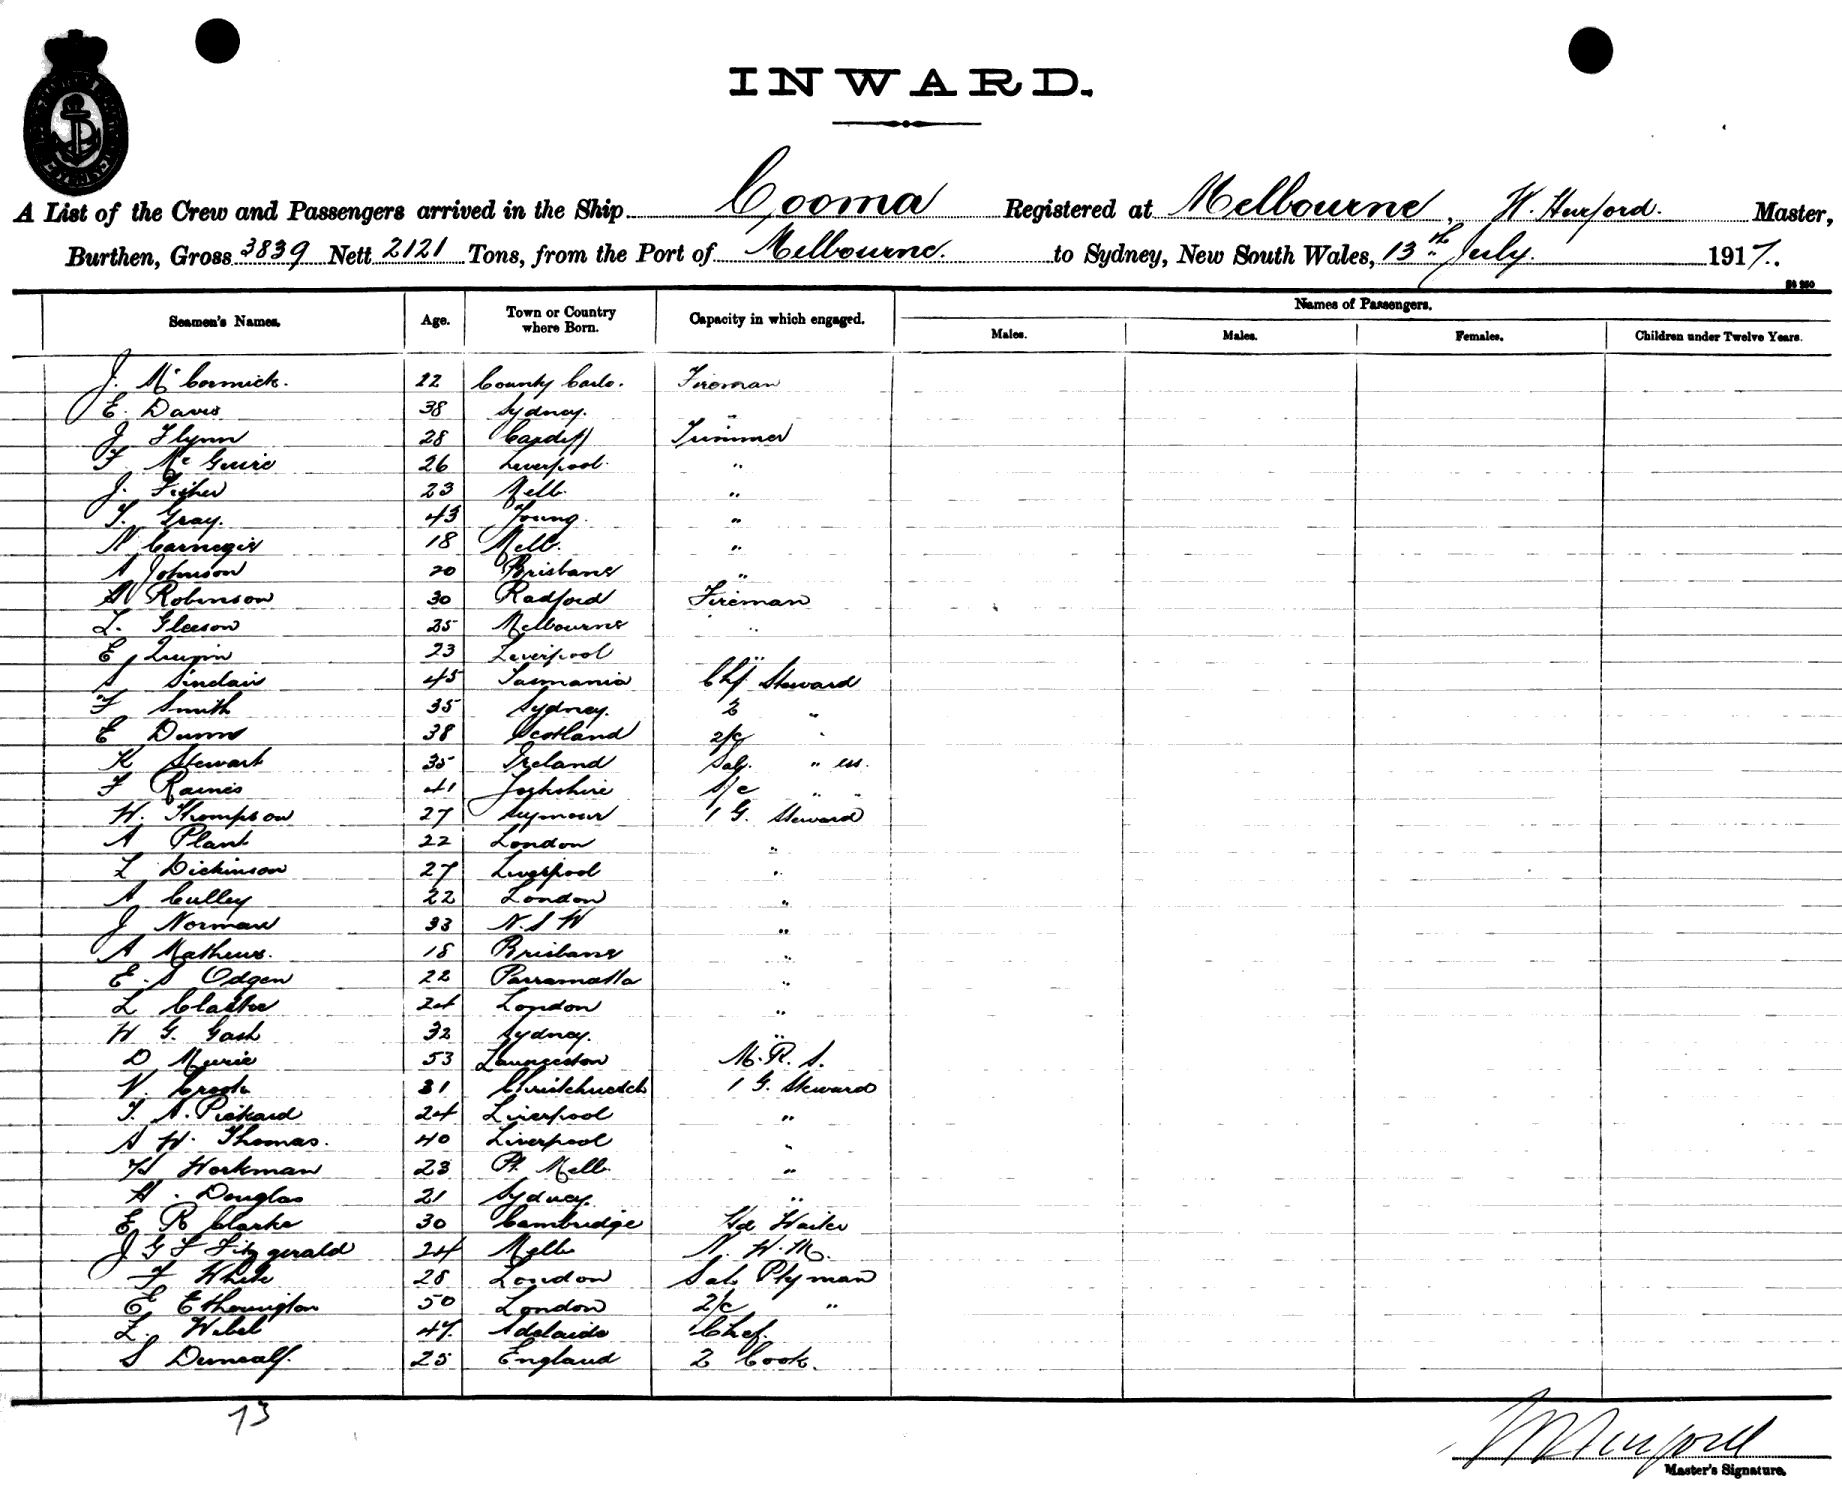 INWARD.
A List of the Crew and Passengers arrived in the Ship Cooma Registered at Melbourne, W. Hurford. Master,
Burthen, Gross 3839 Nett 2121 Tons, from the Port of Melbourne. to Sydney, New South Wales, 13th July. 1917.
Names of Passengers.
Seamen's Names. Age. Town or Country where Born. Capacity in which engaged. Males. Males. Females. Children under Twelve Years.
J. McCormick. 22 County Carlo. Fireman
E. Davis 38 Sydney. "
J Flynn 28 Cardiff Trimmer
F McGuire 26 Liverpool. "
J. Fisher 23 Melb. "
T. Gray. 43 Young. "
N Carnegie 18 Melb. "
A Johnson 20 Brisbane "
A Robinson 30 Radford Fireman
L. Gleeson 25 Melbourne "
E 23 Liverpool "
S Sinclair 45 Tasmania Chf Steward
F Smith 35 Sydney. 2 "
E Dunn 38 Scotland 2/c "
K Stewart 35 Ireland Sal. " ess.
F Raines 41 Yorkshire S/c " "
W. Thompson 27 Seymour 1 G. Steward
A Plant 22 London "
L Dickinson 27 Liverpool "
A Culley 22 London "
J Norman 33 N.S W "
A Mathews. 18 Brisbane "
E. S Odgen 22 Parramatta "
L Clarke 24 London "
W G. Gash 32 Sydney. "
D Murie 53 Launceston M. R. S.
N. Crook 31 Christchurch 1 G. Steward
T. A. Pickard 24 Liverpool "
A W. Thomas. 40 Liverpool "
H Workman 23 Pt. Melb. "
H. Douglas 21 Sydney. "
E R Clarke 30 Cambridge Hd Waiter
J G F Fitzgerald 24 Melb N. W. M.
F White 28 London Sal. Ptyman
E Etherington 50 London 2/c "
L. Wibel 47. Adelaide Chef.
S Duncalf. 25 England 2 Cook.
73
Master's Signature.